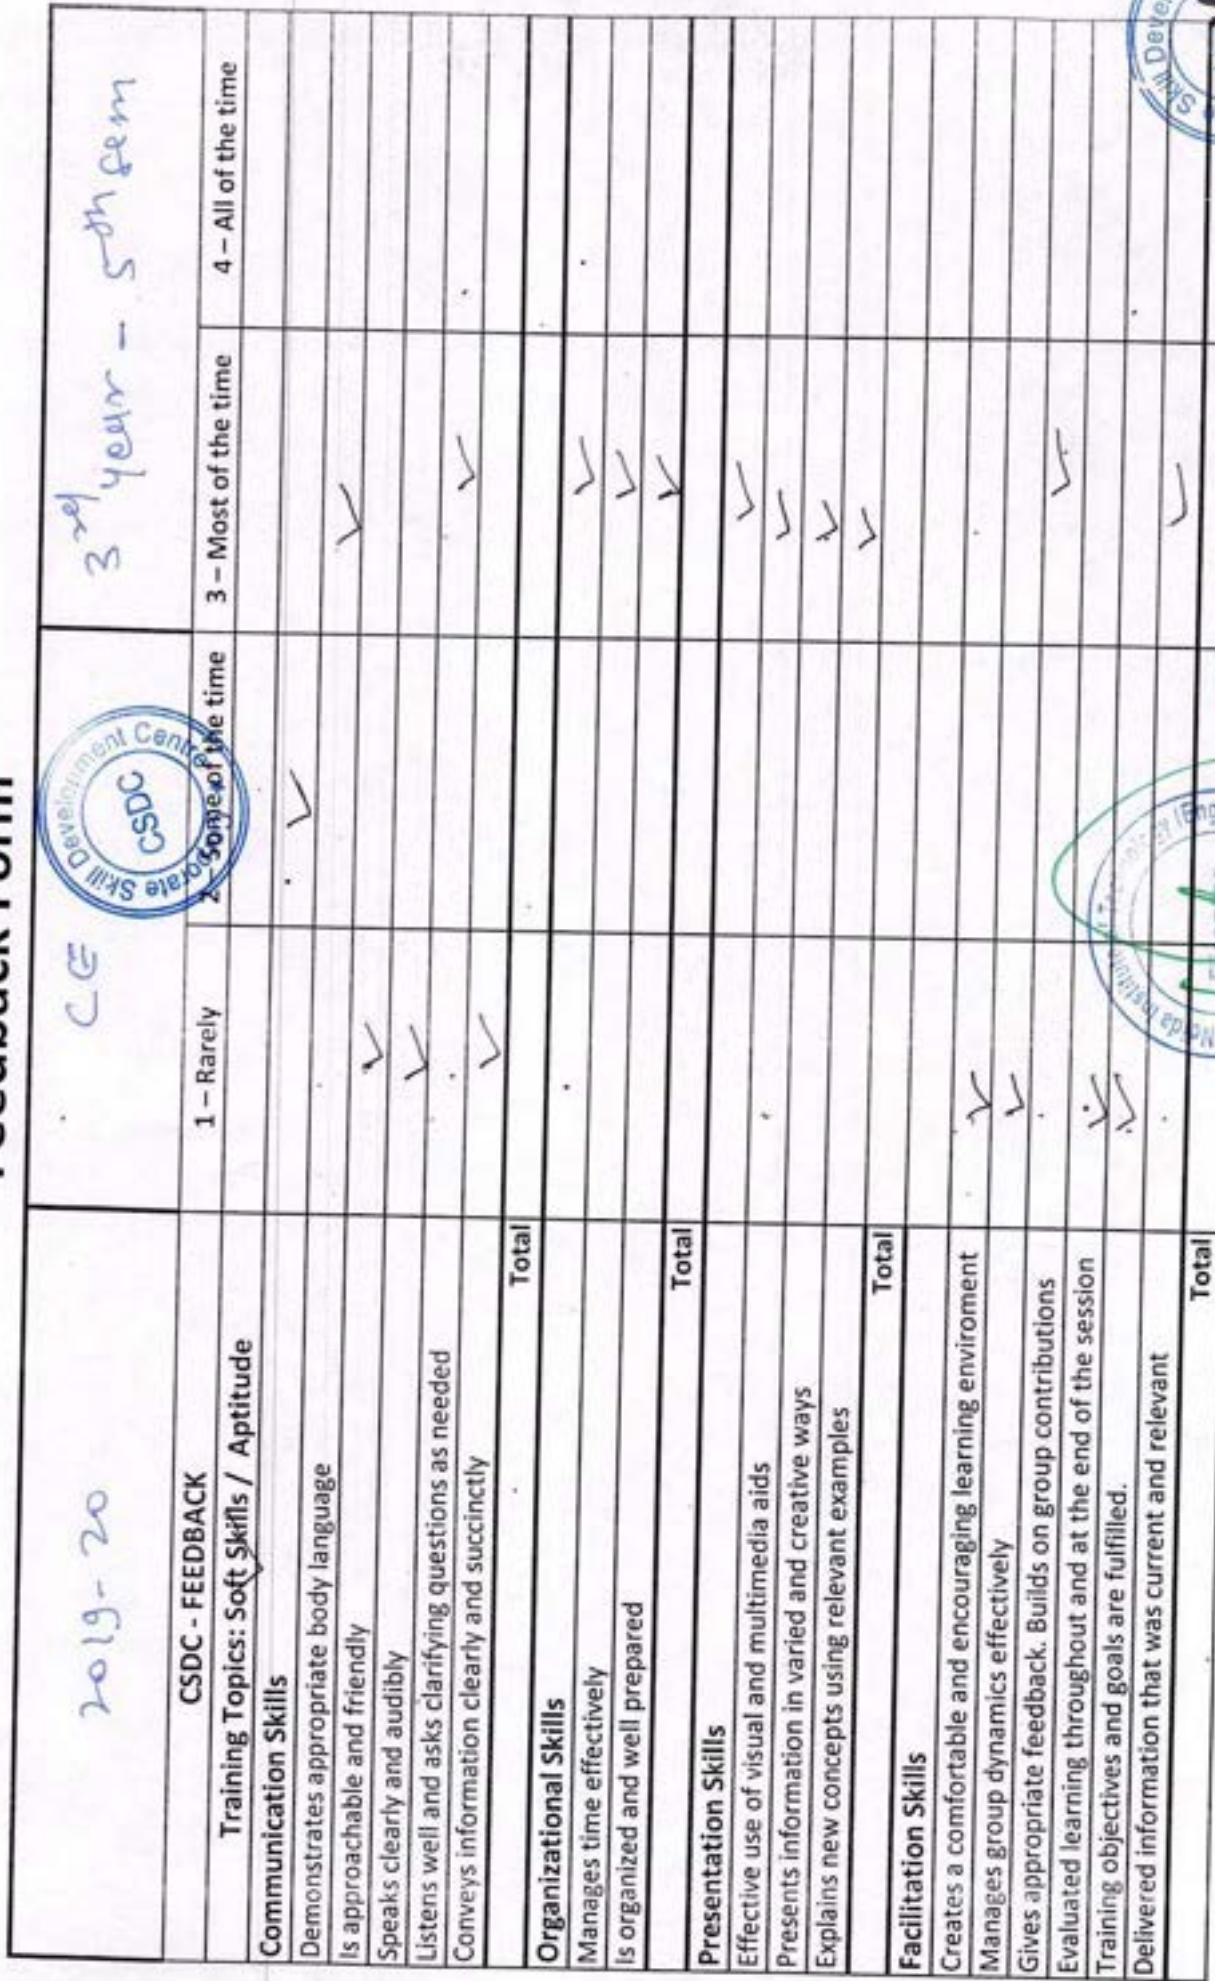 Feedback Form
2019-20 CE 3rd year - 5th sem
CSDC - FEEDBACK 1 – Rarely 2 – Some of the time 3 – Most of the time 4 – All of the time
Training Topics: Soft Skills / Aptitude
Communication Skills
Demonstrates appropriate body language ✓
Is approachable and friendly ✓
Speaks clearly and audibly ✓
Listens well and asks clarifying questions as needed ✓
Conveys information clearly and succinctly ✓ ✓
Total
Organizational Skills
Manages time effectively ✓
Is organized and well prepared ✓
Total ✓
Presentation Skills
Effective use of visual and multimedia aids ✓
Presents information in varied and creative ways ✓
Explains new concepts using relevant examples ✓
Total ✓
Facilitation Skills
Creates a comfortable and encouraging learning enviroment ✓
Manages group dynamics effectively ✓
Gives appropriate feedback. Builds on group contributions
Evaluated learning throughout and at the end of the session ✓
Training objectives and goals are fulfilled. ✓ ✓
Delivered information that was current and relevant
Total ✓
Corporate Skill Development Centre
CSDC
Noida Institute
Skill